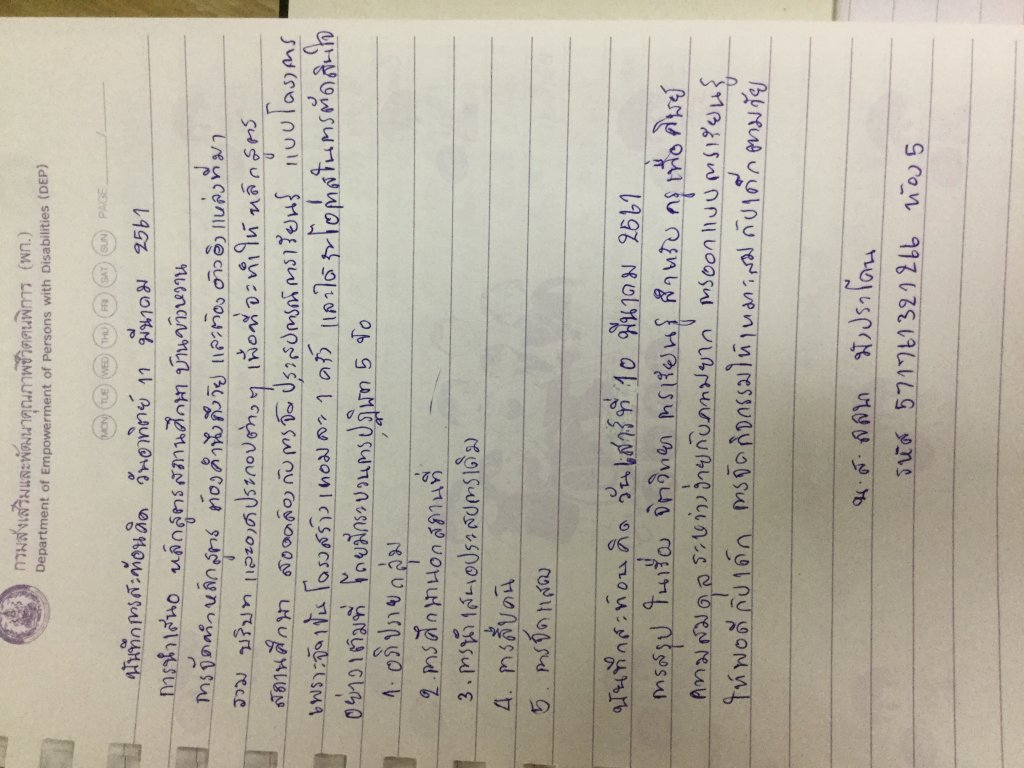 กรมส่งเสริมและพัฒนาคุณภาพชีวิตคนพิการ (พก.)
Department of Empowerment of Persons with Disabilities (DEP)
MON TUE WED THU FRI SAT SUN PAGE ____/____
บันทึกการสะท้อนคิด วันอาทิตย์ 11 มีนาคม 2561
การนำเสนอ หลักสูตรสถานศึกษา บ้านข้าวหวาน
การจัดทำหลักสูตร ต้องคำนึงถึงวัย และต้องอ้างอิงแหล่งที่มา
รวม บริบท และองค์ประกอบต่างๆ เพื่อที่จะทำให้หลักสูตร
สถานศึกษา สอดคล้องกับการจัดประสบการณ์การเรียนรู้ แบบโครงการ
เพราะจัดเป็นโครงสร้าง เทอมละ 1 ครั้ง และใส่ในการตัดสินใจ
อย่างเต็มที่ โดยมีกระบวนการปฏิบัติ 5 ข้อ
1. อภิปรายกลุ่ม
2. การศึกษานอกสถานที่
3. การนำเสนอประสบการณ์เดิม
4. การสืบค้น
5. การจัดแสดง
บันทึกสะท้อนคิด วันเสาร์ที่ 10 มีนาคม 2561
การสรุป ในเรื่อง จิตวิทยา การเรียนรู้ สำหรับ ครูเพื่อศิษย์
ความสมดุล ระหว่างง่ายกับความยาก การออกแบบการเรียนรู้
ให้พอดีกับเด็ก การจัดกิจกรรมให้เหมาะสมกับเด็กตามวัย
น.ส. ลลนา มั่งประโคน
รหัส 5717761321266 ห้อง 5